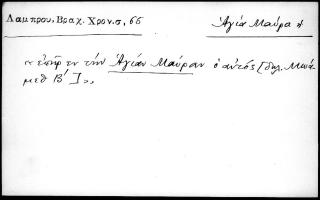 Λαμπρου, Βραχ. Χρον. σ, 66
Ἁγία Μαύρα
« ἐπῆρεν τὴν Ἁγίαν Μαύραν ὁ αὐτός [δηλ. Μωά-
μεθ Β΄] »,